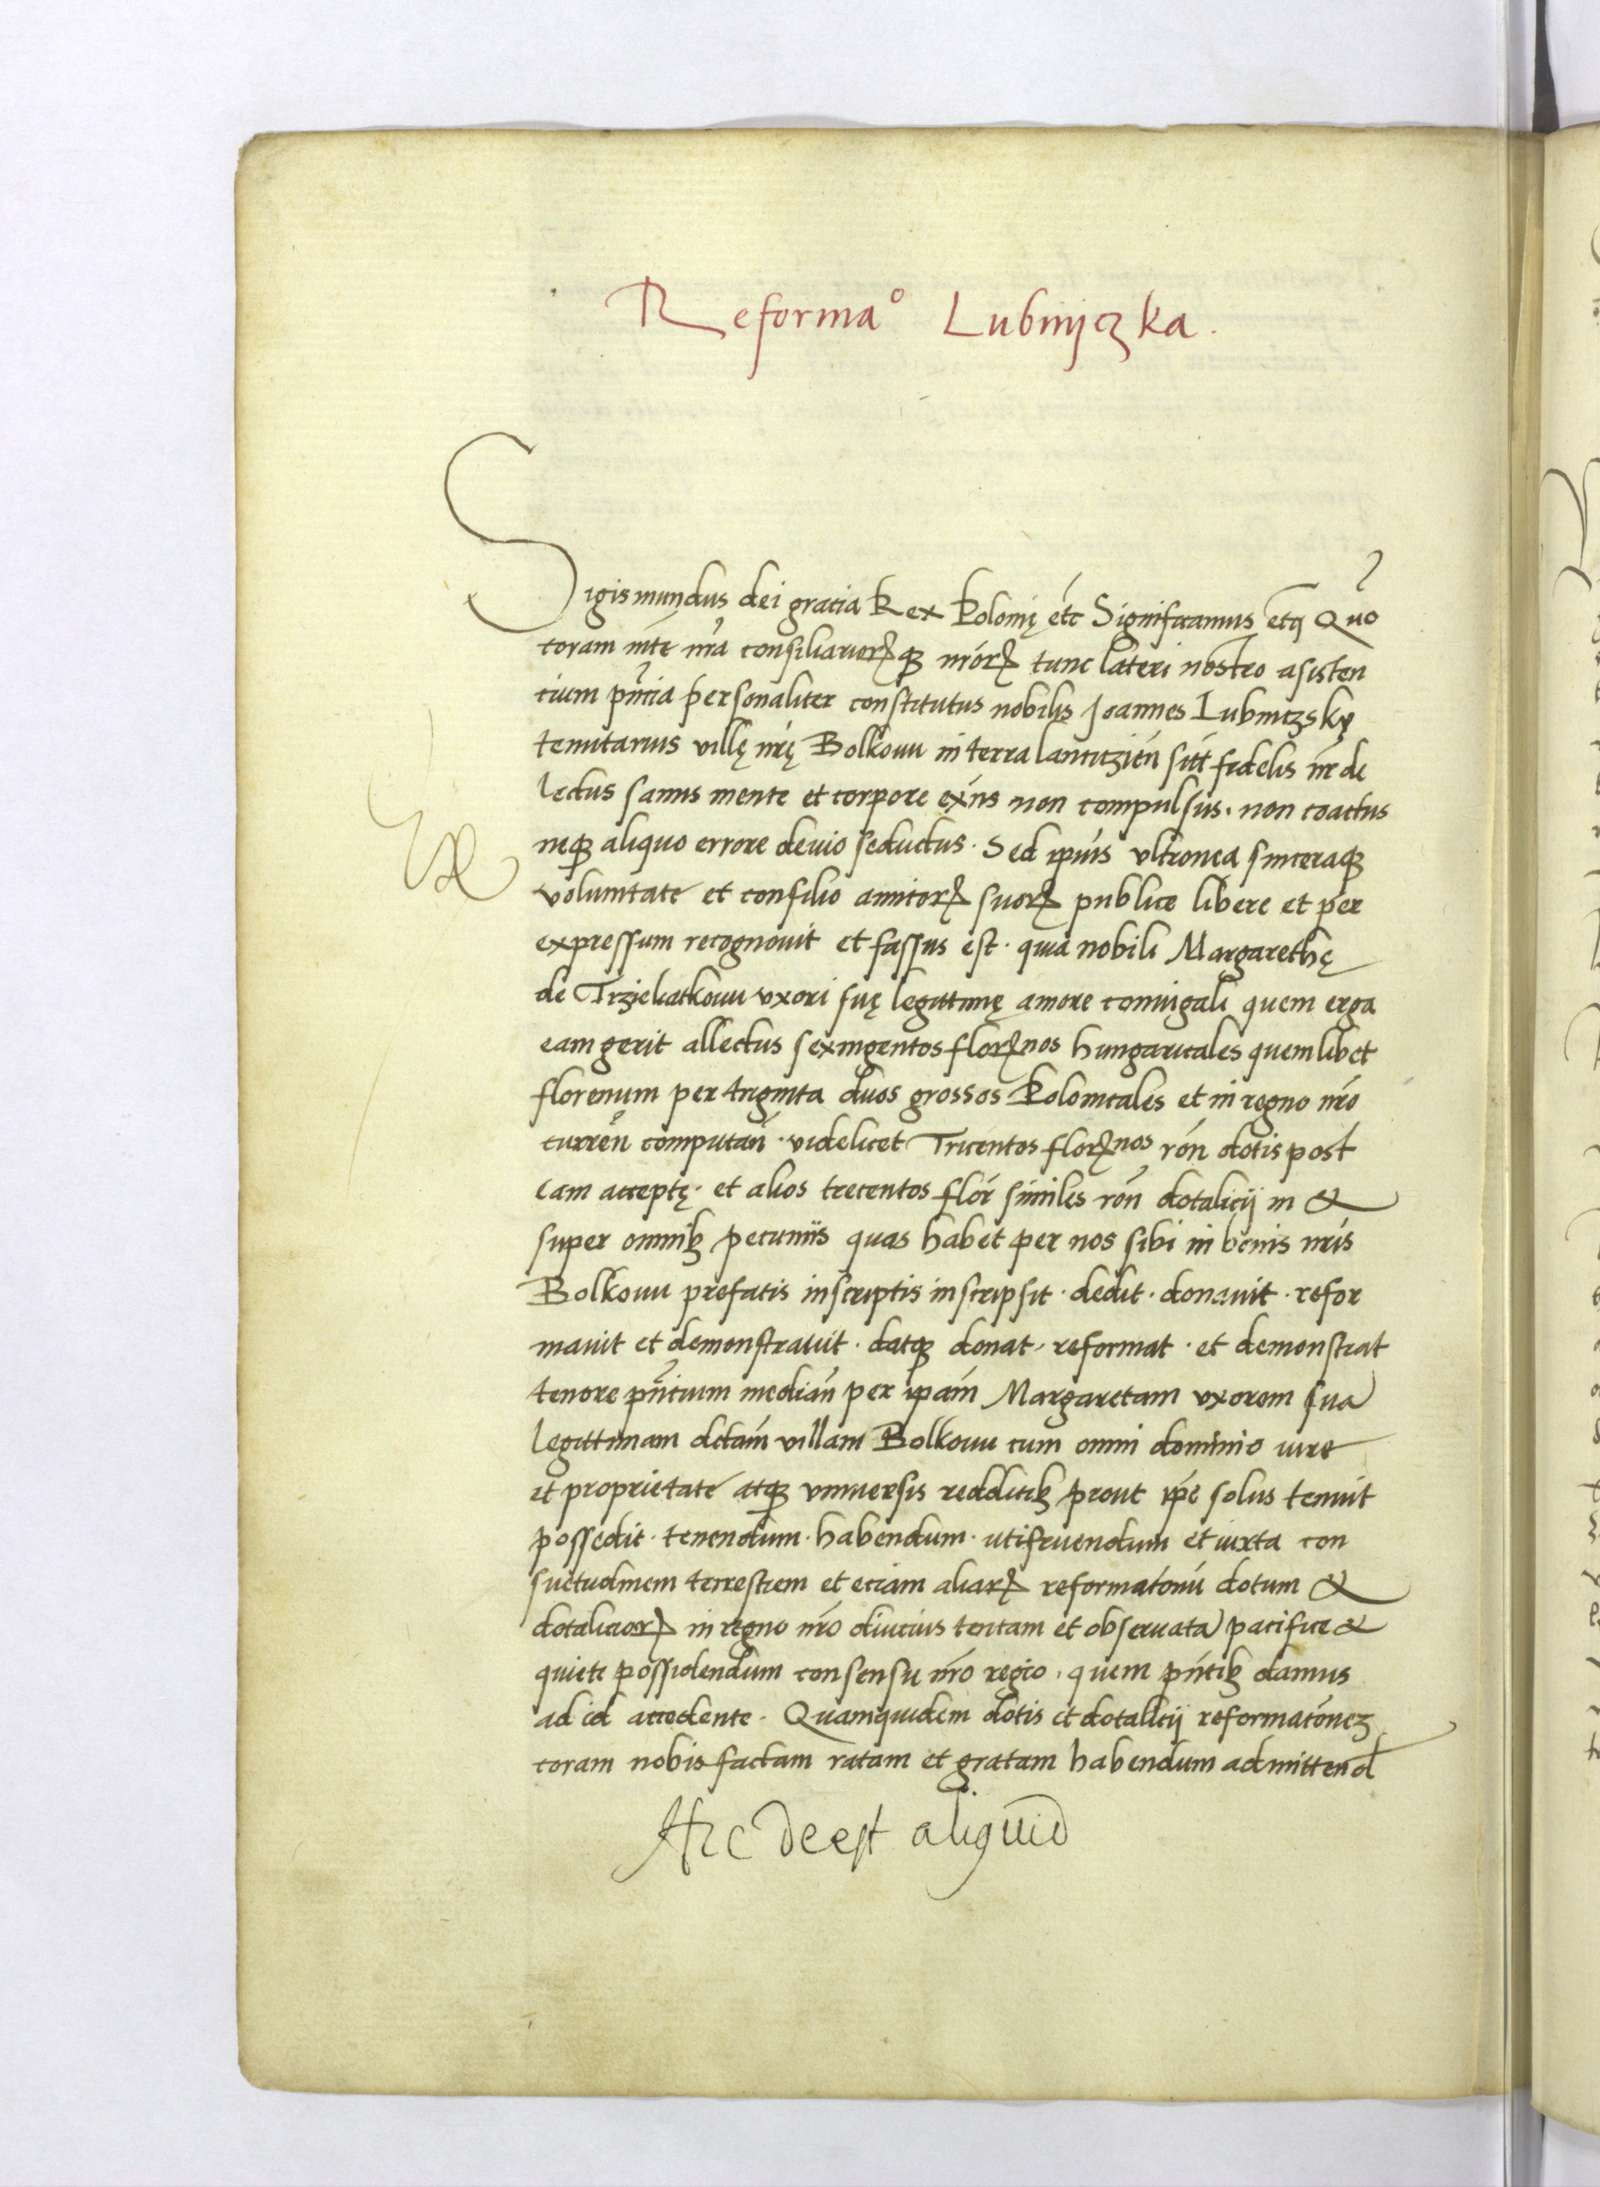 Reformaº Lubnyczka.
Sigismundus dei gratia Rex Polonię etc̄ Significamus etꝗ Quō
coram mte nrā consiliariorꝝꝙ nrōrꝝ tunc lateri nostro asisten
cium pn̄tia personaliter constitutus nobilis Joannes Lubniczskÿ
tenutarius villę nrę Bolkouu in terra lancitzień sitꝭ fidelis nr̄ de
lectus sanus mente et corpore exn̄s non compulsus. non coactus
neqꝫ aliquo errore deuio seductus. Sed ipīus vltronea sinceraqꝫ
voluntate et consilio amicorꝝ suorꝝ publice libere et per
expressum recognouit et fassus est. quia nobili Margarethę
de Trzielatkouu vxori suę legittimę amore coniugali quem erga
eam gerit allectus sexingentos florꝝnos hungaricales quemlibet
florenum per triginta duos grossos Polonicales et in regno nrō
curren̄ computan̄. videlicet Tricentos florꝝnos rōn dotis post
eam acceptę. et alios trecentos flor̄ similes rōn dotalicij in &
super omnibꝫ pecuniis quas habet per nos sibi in bonis nrīs
Bolkouu prefatis inscriptis inscripsit. dedit. donauit. refor
mauit et demonstrauit. datqꝫ donat. reformat. et demonstrat
tenore pn̄cium median̄ per ipam̄ Margaretam vxorem suā
legittimam dctam̄ villam Bolkouu cum omni dominio iure
et proprietate atqꝫ vniuersis redditibꝫ prout ipē solus tenuit
possedit. tenendum. habendum. utifruendum et iuxta con
suetudinem terrestrem et eciam aliarꝝ reformatōnū dotum &
dotaliciorꝝ in regno nrō diucius tentam et obseruatā pacifice &
quiete possidendum consensu nrō regio. quem pn̄tibꝫ damus
ad id accedente. Quamquidem dotis et dotalicij reformatōneꝫ
coram nobis factam ratam et gratam habendum admittend
Hic deest aliquid